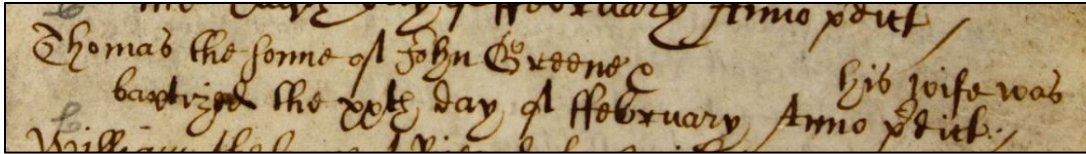 the day of ffebruary Anno pdict
Thomas the sonne of John Greene
his wife was
baptized the xxth day of ffebruary Anno pdict.
William the